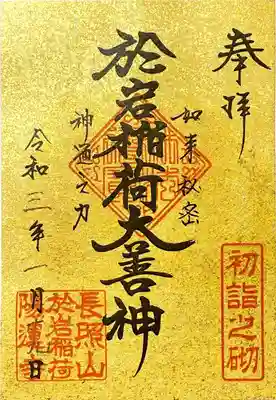 奉拝
如来秘密
於岩稲荷大善神
神通之力
令和三年一月 日
初詣之砌
長照山
於岩稲荷
陽運寺